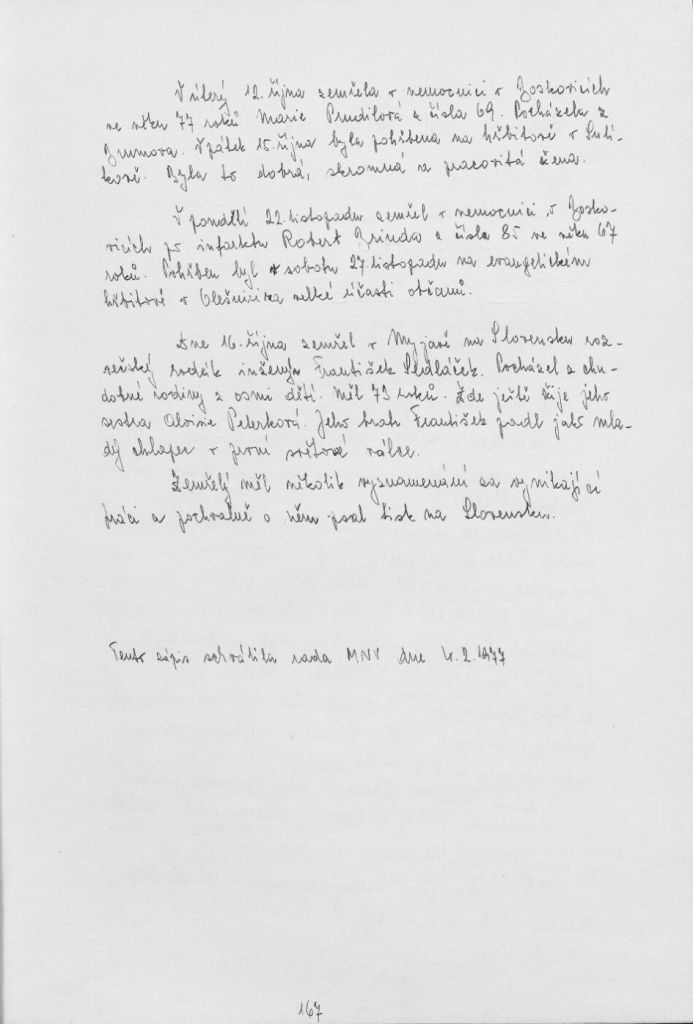 V úterý 12. října zemřela v nemocnici v Boskovicích
ve věku 77 roků Marie Prudilová z čísla 69. Pocházela z
Brumova. V pátek 15. října byla pohřbena na hřbitově v Suli-
kově. Byla to dobrá, skromná a pracovitá žena.
V pondělí 22. listopadu zemřel v nemocnici v Bosko-
vicích po infarktu Robert Brinda z čísla 85 ve věku 67
roků. Pohřben byl v sobotu 27. listopadu na evangelickém
hřbitově v Olešničce za velké účasti občanů.
Dne 16. října zemřel v Myjavě na Slovensku roz-
sečský rodák inženýr František Sedláček. Pocházel z chu-
dobné rodiny z osmi dětí. Měl 73 roků. Zde ještě žije jeho
sestra Aloisie Peterková. Jeho bratr František padl jako mla-
dý chlapec v první světové válce.
Zemřelý měl několik vyznamenání za vynikající
práci a pochvalně o něm psal tisk na Slovensku.
Tento zápis schválila rada MNV dne 4. 2. 1977
167